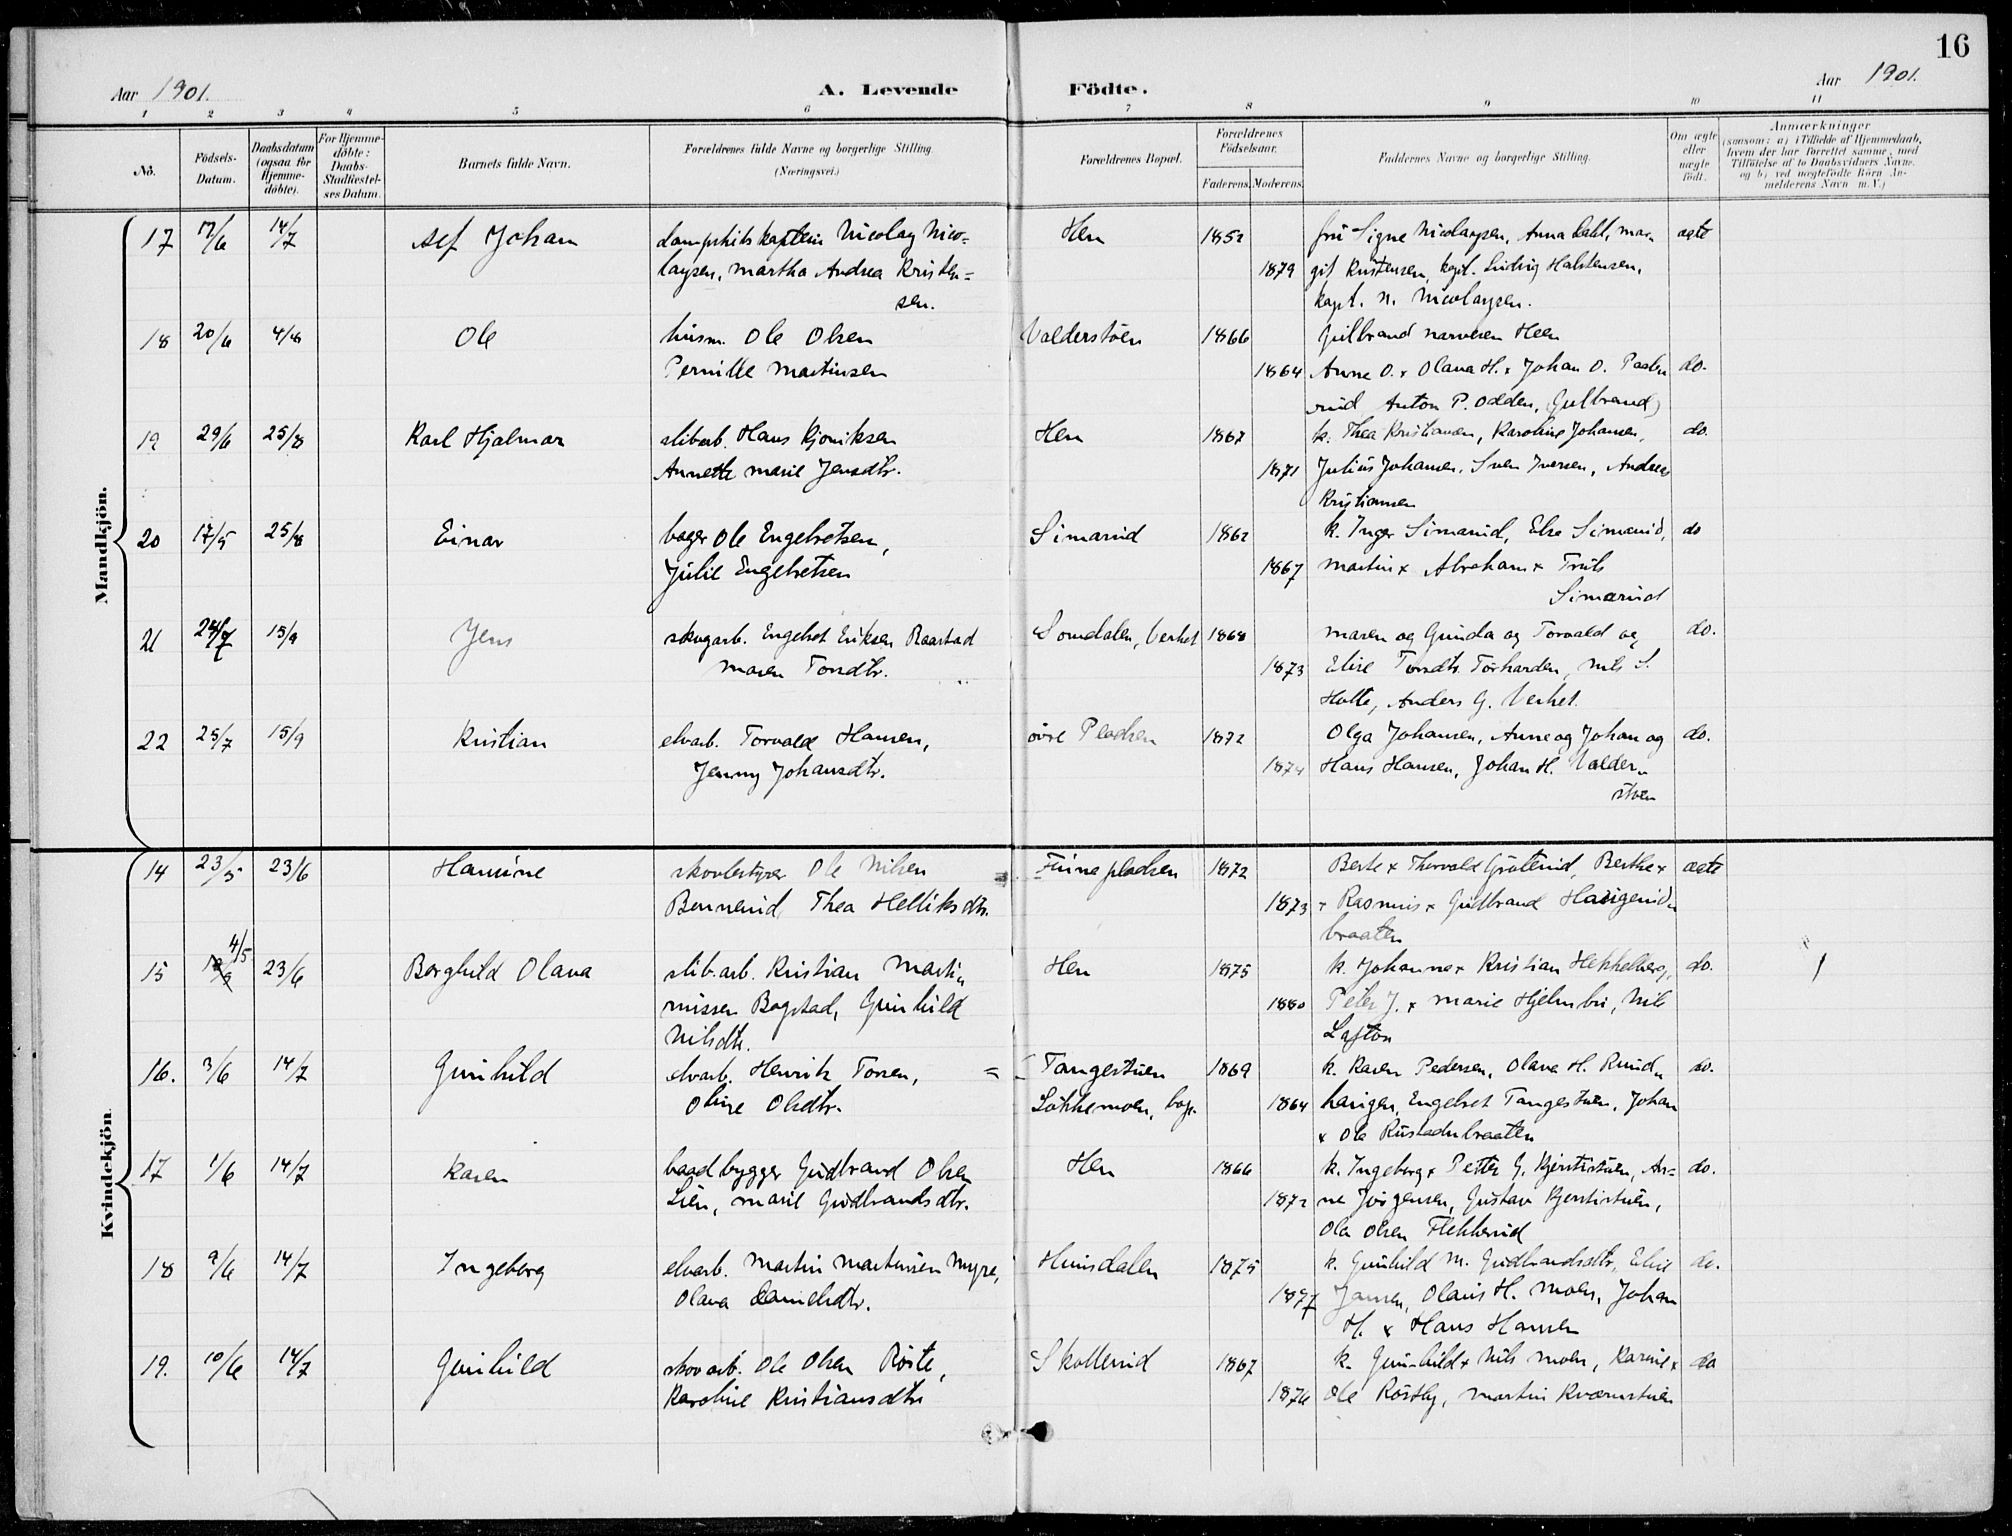 16
Aar 1901. A. Levende Födte. Aar 1901.
1 2 3 4 5 6 7 8 9 10 11
No. Födsels-Datum. Daabsdatum (ogsaa for Hjemme-döbte). For Hjemme-döbte: Daabs-Stadfæstel-ses Datum. Barnets fulde Navn. Forældrenes fulde Navne og borgerlige Stilling. (Næringsvei.) Forældrenes Bopæl. Forældrenes Födselsaar. Faderens. Moderens. Faddernes Navne og borgerlige Stilling. Om ægte eller uægte födt. Anmærkninger (saasom: a) i Tilfælde af Hjemmedaab, hvem der har forrettet samme, med Tilföielse af to Daabsvidners Navne, og b) ved uægtefödte Börn An-melderens Navn m. V.)
Mandkjön.
17 17/6 14/7 Alf Johan dampskibskaptein Nicolay Nico- Hen 1852 fru Signe Nicolaysen, Anna Dahl, mar- ægte
laysen, Martha Andrea Kristen= 1879 git Kristensen, kapt. Ludvig Halstensen,
sen. kapt. N. Nicolaysen.
18 20/6 4/8 Ole husm. Ole Olsen Valderstöen 1866 Gulbrand Narvesen Heen
Pernille Martinsen 1864 Anne O. x Olava H. x Johan O. do.
rud, Anton P. Odden, (Gulbrand)
19 29/6 25/8 Karl Hjalmar slibarb. Hans Hen 1867 k. Thea Kristiansen, Karoline Johansen, do.
Annette Marie Jensdtr. 1871 Julius Johansen, Sven Iversen, Andreas
Kristiansen
20 17/5 25/8 Einar bager Ole Engebretsen, Simarud 1862 k. Inger Simarud, Else Simarud, do
Julie Engebretsen 1867 Martin x Abraham x Truls
Simarud
21 24/7 15/9 Jens skogarb. Engebret Eriksen Raastad Somdalen, Verket 1868 Maren og Gunda og Torvald og do.
Maren Torsdtr. 1873 Elise Torsdtr. Nils S.
Holte, Anders G. Verket.
22 25/7 15/9 Kristian elvarb. Torvald Hansen, övre Pladsen 1872 Olga Johansen, Anne og Johan og do.
Jenny Johansdtr. 1874 Hans Hansen, Johan H. Valder-
stöen
Kvindekjön.
14 23/5 23/6 Hansine skovbestyrer Ole Nilsen 1872 Berte x Thorvald Berthe x ægte
Thea Helliksdtr. 1873 x Rasmus x Gudbrand Haugerud-
braaten
4/5
15 23/6 Borghild Olava slib.arb. Kristian Marti- Hen 1875 k. Johanne x Kristian Hekkelberg, do.
nussen Bogstad, Gunhild 1880 Peter J. x Marie Nils
Nilsdtr. Lofton
16. 3/6 14/7 Gunhild elvarb. Henrik Torsen, = Tangestuen 1869 k. Karen Pedersen, Olava H. Rund- do.
Oline Olsdtr. Løkkemoen, bop. 1864 haugen, Engebret Tangestuen, Johan
x Ole Rustadbraaten
17 1/6 14/7 Karen baadbygger Gudbrand Olsen Hen 1866 k. Ingeborg x Petter G. Kjerstistuen, An= do.
Lien, Marie Gudbrandsdtr. 1872 ne Jörgensen, Gustav Kjerstistuen,
Ole Olsen Flekkerud
18 9/6 14/7 Ingeborg elvarb. Martin Martinsen Myre, Hunsdalen 1875 k. Gunhild M. Gudbrandsdtr, Elise do.
Olava Danielsdtr. 1877 Jansen, Olaus H. Moen, Johan
H. x Hans Hansen
19. 10/6 14/7 Gunhild skovarb. Ole Olsen Röste, Skollerud 1867 k. Gunhild x Nils Moen, Karine x do
Karoline Kristiansdtr 1876 Ole Röstby, Martin Kværnstuen